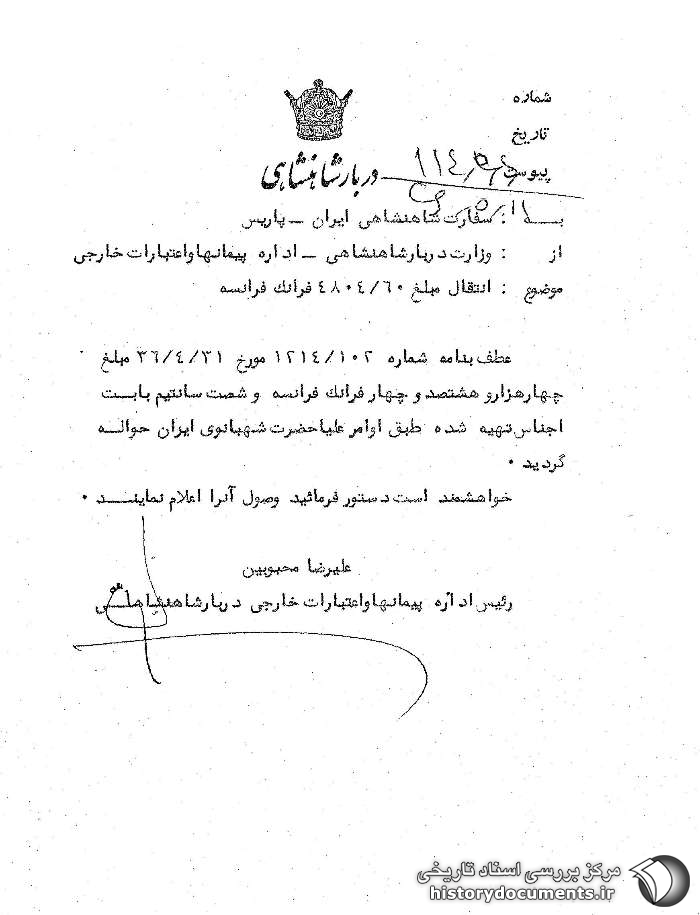 شماره
تاریخ
پیوست
دربار شاهنشاهی
به : سفارت شاهنشاهی ایران ـ پاریس
از : وزارت دربار شاهنشاهی ـ اداره پیمانها و اعتبارات خارجی
موضوع : انتقال مبلغ ٤٨٠٤/٦٠ فرانك فرانسه
عطف بنامه شماره ١٢١٤/١٠٢ مورخ ٣٦/٤/٣١ مبلغ
چهار هزار و هشتصد و چهار فرانك فرانسه و شصت سانتیم بابت
اجناس تهیه شده طبق اوامر علیاحضرت شهبانوی ایران حواله
گردید ٠
خواهشمند است دستور فرمائید وصول آنرا اعلام نمایند ٠
علیرضا محبوبین
رئیس اداره پیمانها و اعتبارات خارجی دربار شاهنشاهی
مرکز بررسی اسناد تاریخی
historydocuments.ir